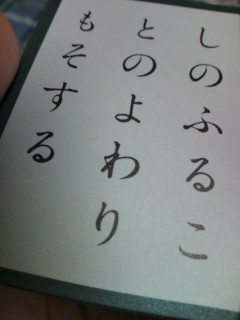 しのふるこ
とのよわり
もそする